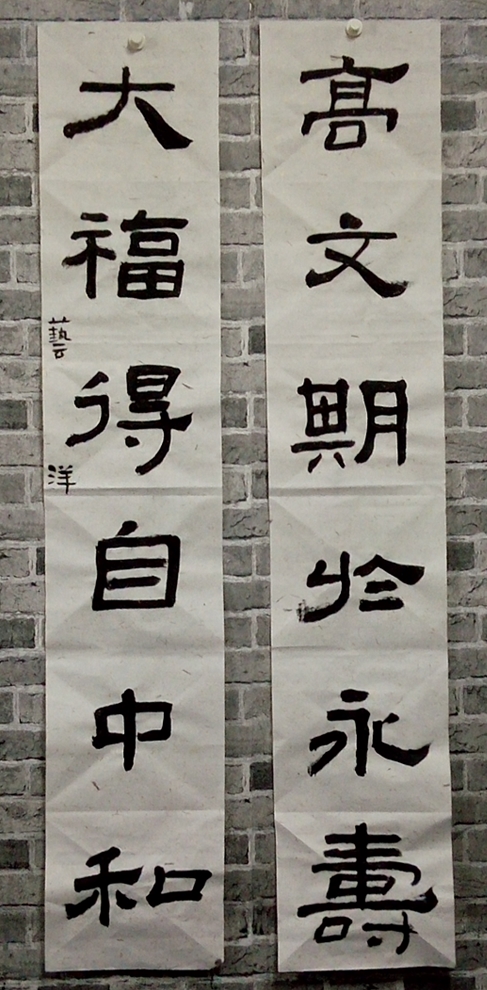 高文期於永壽
大福得自中和
藝云
洋